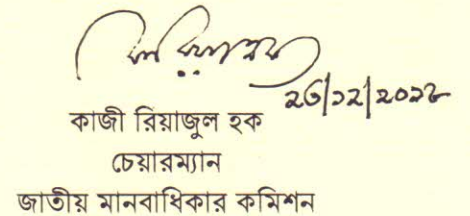 ২৬/১২/২০১৮
কাজী রিয়াজুল হক
চেয়ারম্যান
জাতীয় মানবাধিকার কমিশন